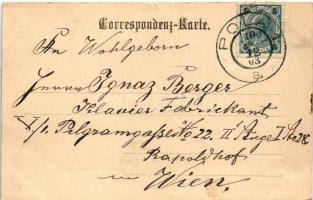 Correspondenz-Karte.
An Wohlgeborn
Herrn Ignaz Berger
Klavier Fabrikant
V/1. Pilgramgasse No 22. II Stiege I St.
Rapoldhof
in Wien.
PO
03
6 6